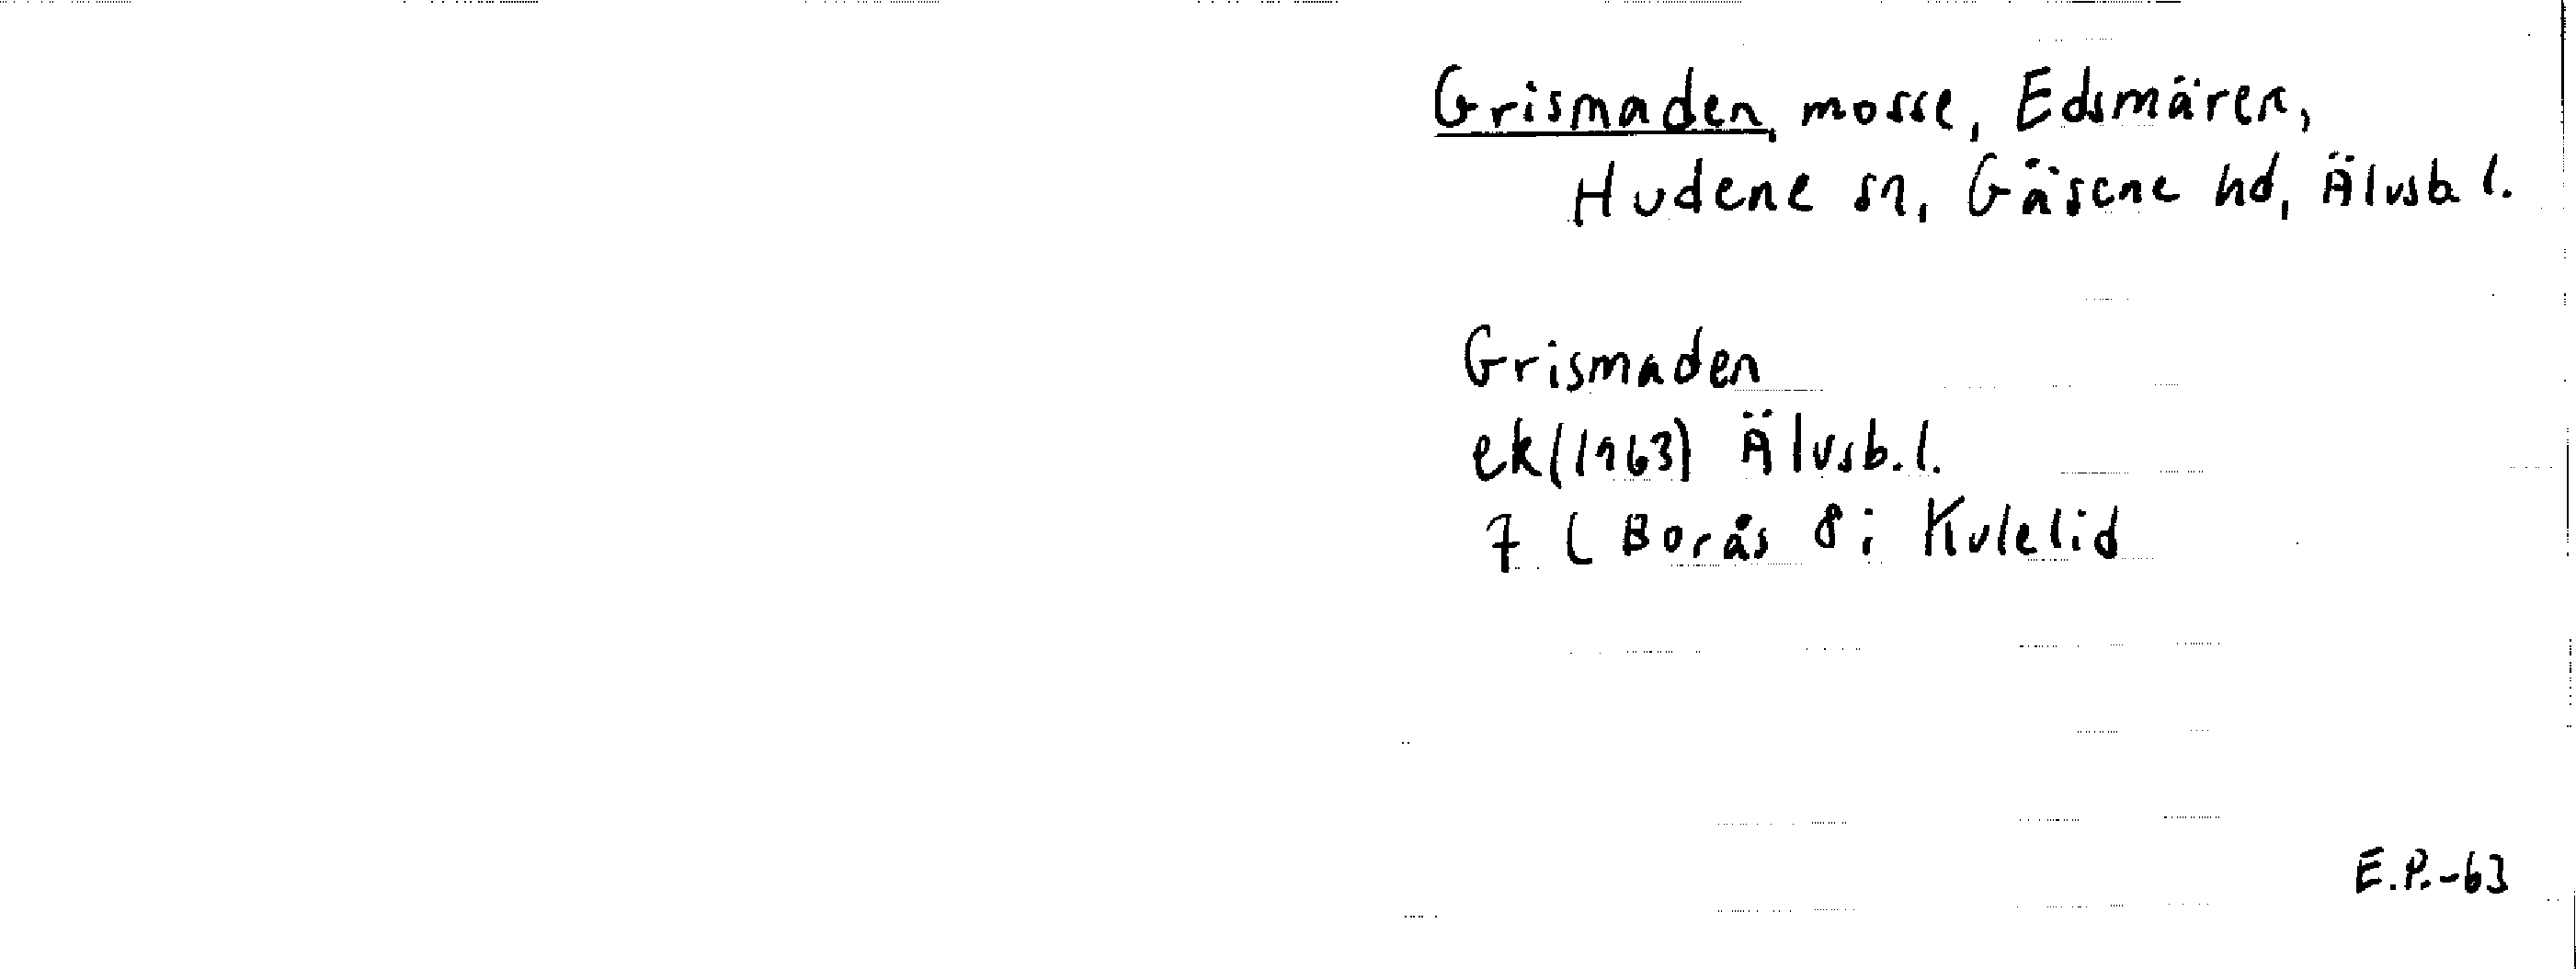 Grismaden, mosse, Edsmären,
Hudene sn, Gäsene hd, Älvsb. l.
Grismaden
ek (1963) Älvsb. l.
7 C Borås 8 i Kulelid
E.P.-63